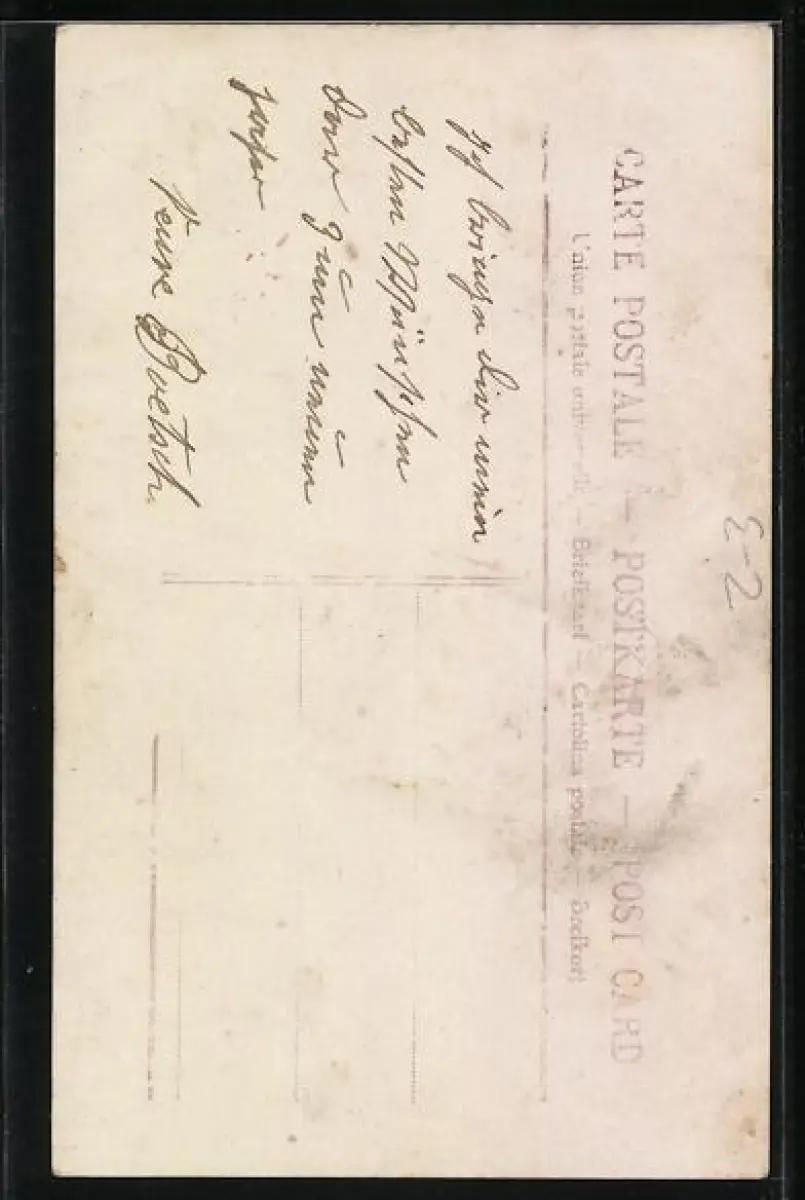 E-2
CARTE POSTALE — POSTKARTE — POST CARD
Union postale universelle — Briefkaart — Cartolina postale — Brefkort
Ich bringe dir mein
besten Wünschen
zum neuen
Jahre
Veuve Boetsch.